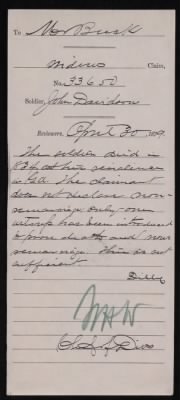 To Mr Burk
widows Claim,
No. 33650
Soldier, John Davidson
Reviewers, April 30
The soldier died in
at his residence
The claimant
does not declare non-
remarriage. Only one
has been introduced
to prove death and non
remarriage. This is not
sufficient.
Dilley